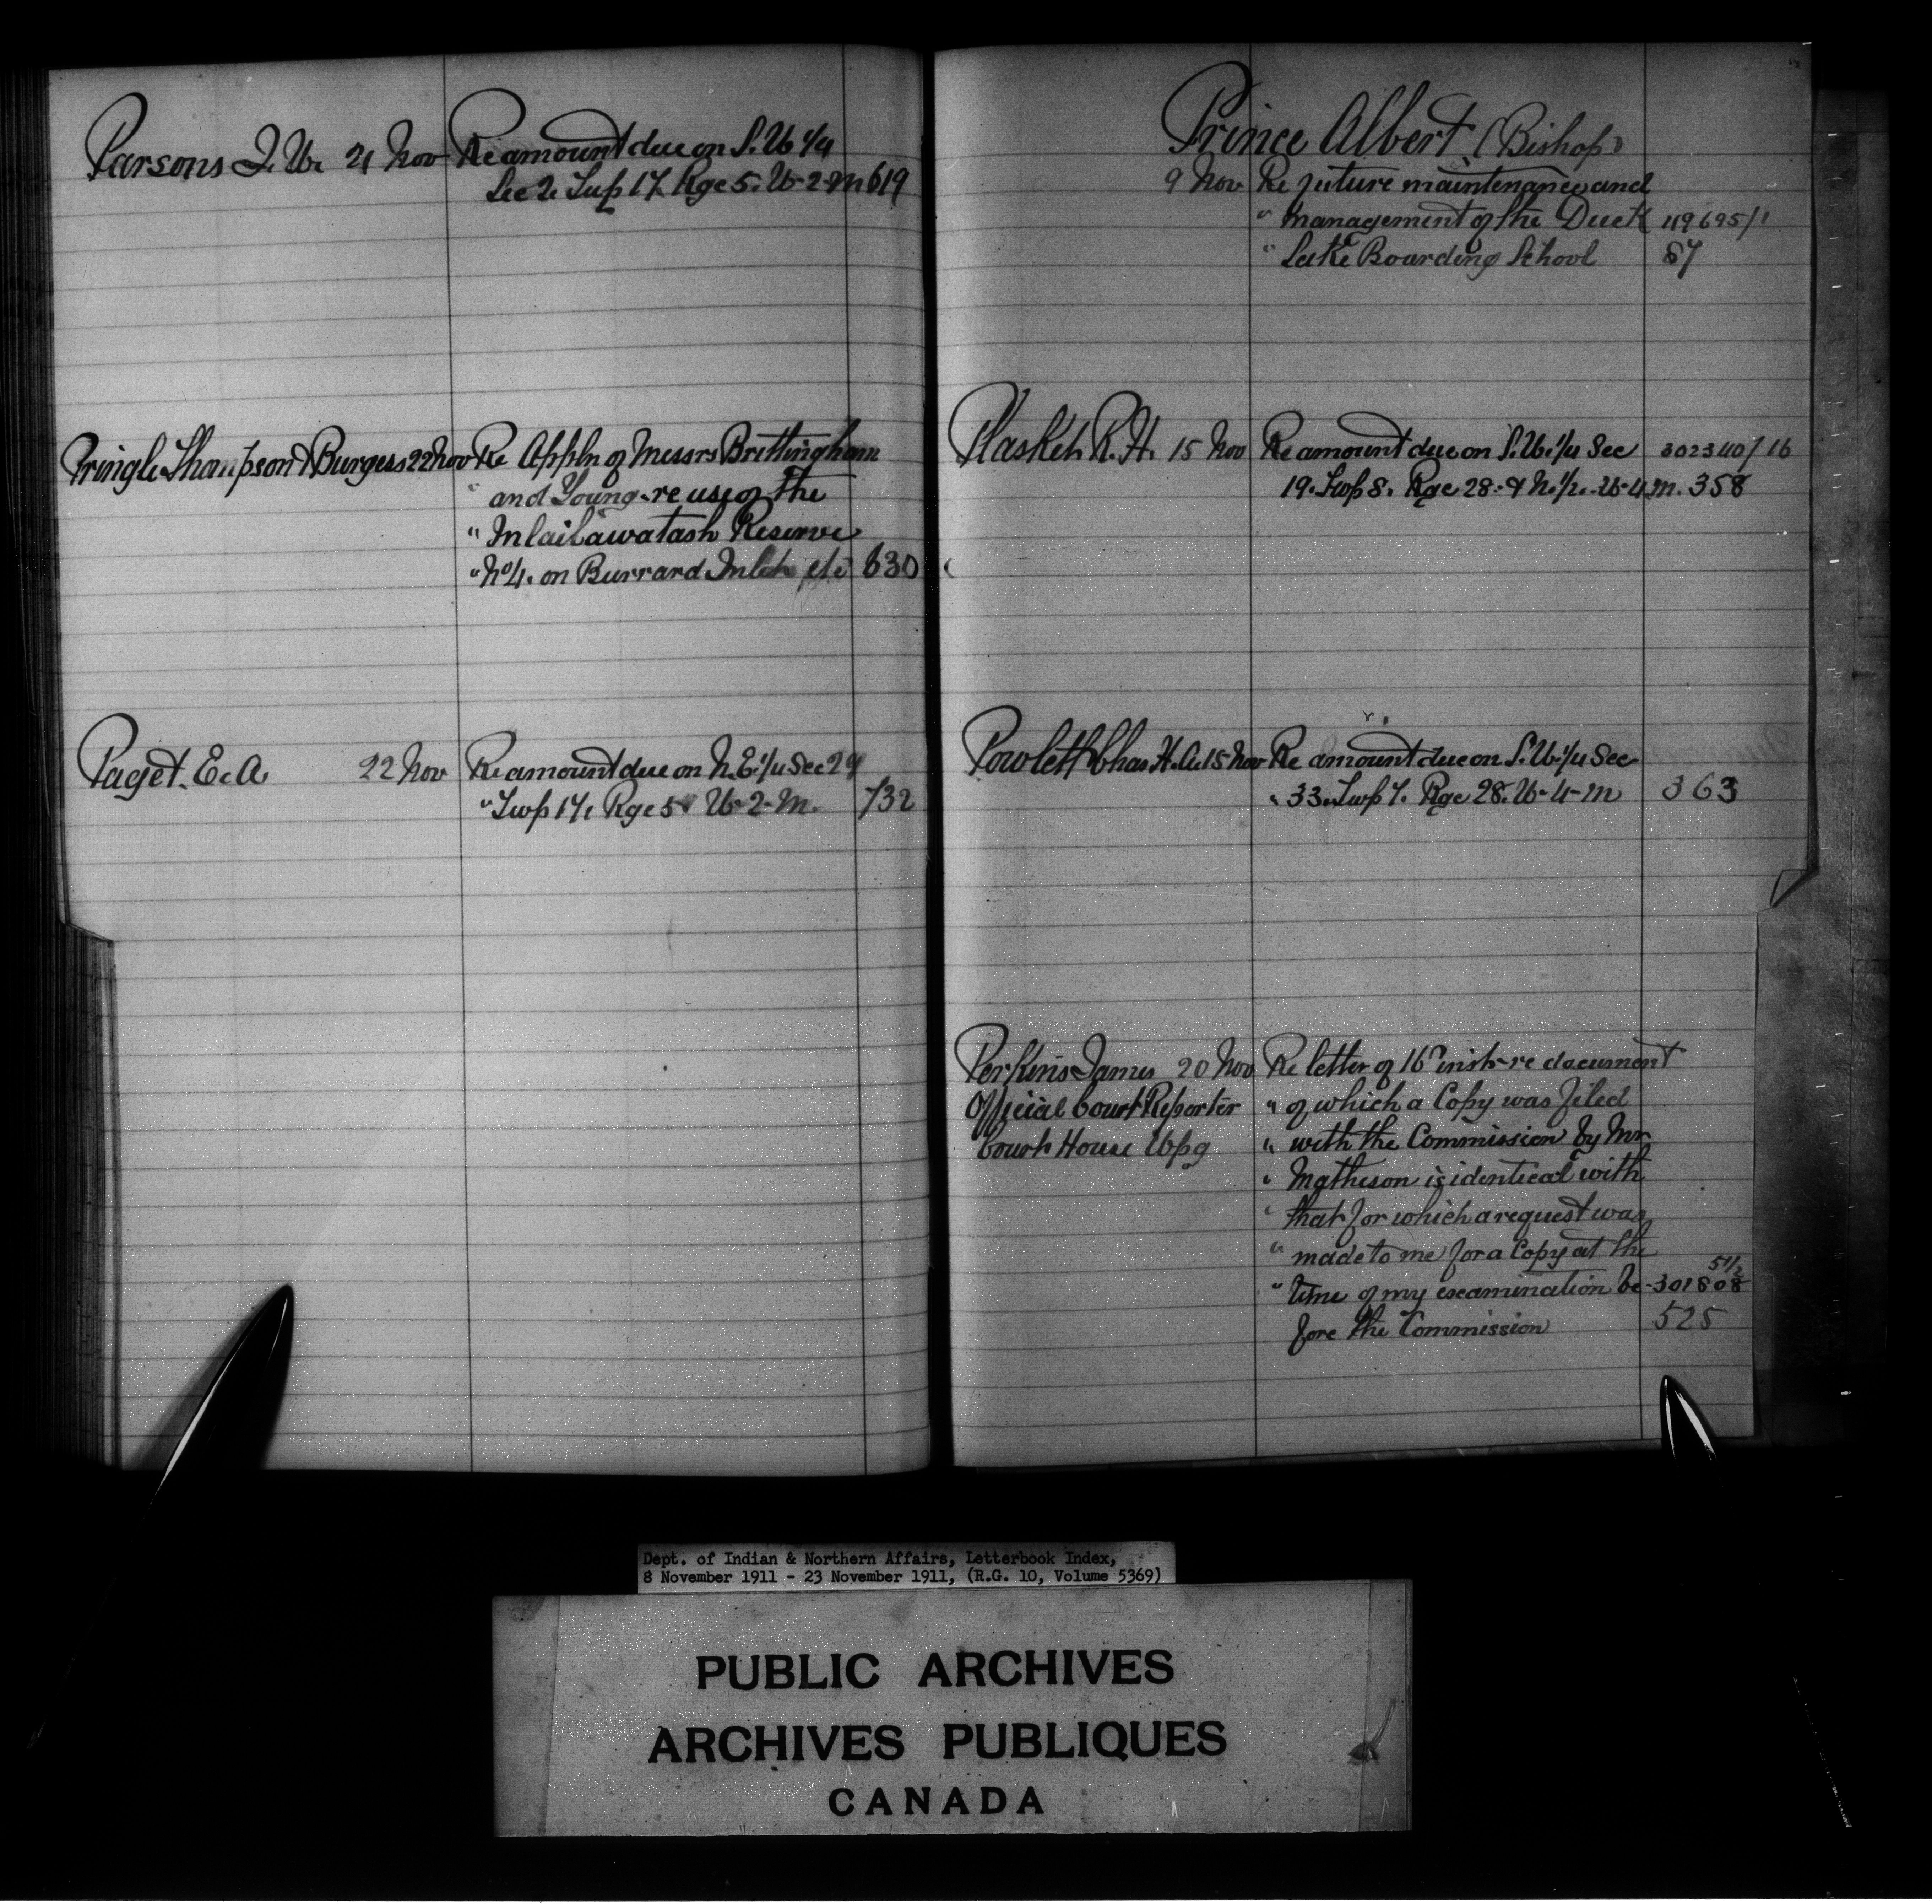 Parsons J. W. 21 Nov Re amount due on S. W. 1/4
Sec 2. Twp 17. Rge 5. W-2-M 619
Pringle Thompson & Burgess 22 Nov Re Appln of Messrs Brittingham
" and Young-re use of the
" Inlailawatash Reserve
" No 4. on Burrard Inlet etc 630
Paget. E. A. 22 Nov Re amount due on N. E. 1/4 Sec 24
" Twp 17. Rge 5. W-2-M. 732
Prince Albert (Bishop)
9 Nov Re future maintenance and
" management of the Duck 119695/1
" Lake Boarding School 87
Plaskett R. H. 15 Nov Re amount due on S. W. 1/4 Sec 302340/16
19. Twp 8. Rge 28. & N. 1/2. W-4 M. 358
Powlett Chas H. A. 15 Nov Re amount due on S. W. 1/4 Sec
" 33. Twp 7. Rge 28. W-4-M 363
Perkins James 20 Nov Re letter of 16th inst-re document
Official Court Reporter " of which a Copy was filed
Court House Wpg " with the Commission by Mr
" Matheson is identical with
" that for which a request was
" made to me for a Copy at the
" time of my examination be- 301808 51/2
fore the Commission 525
Dept. of Indian & Northern Affairs, Letterbook Index,
8 November 1911 - 23 November 1911, (R.G. 10, Volume 5369)
PUBLIC ARCHIVES
ARCHIVES PUBLIQUES
CANADA